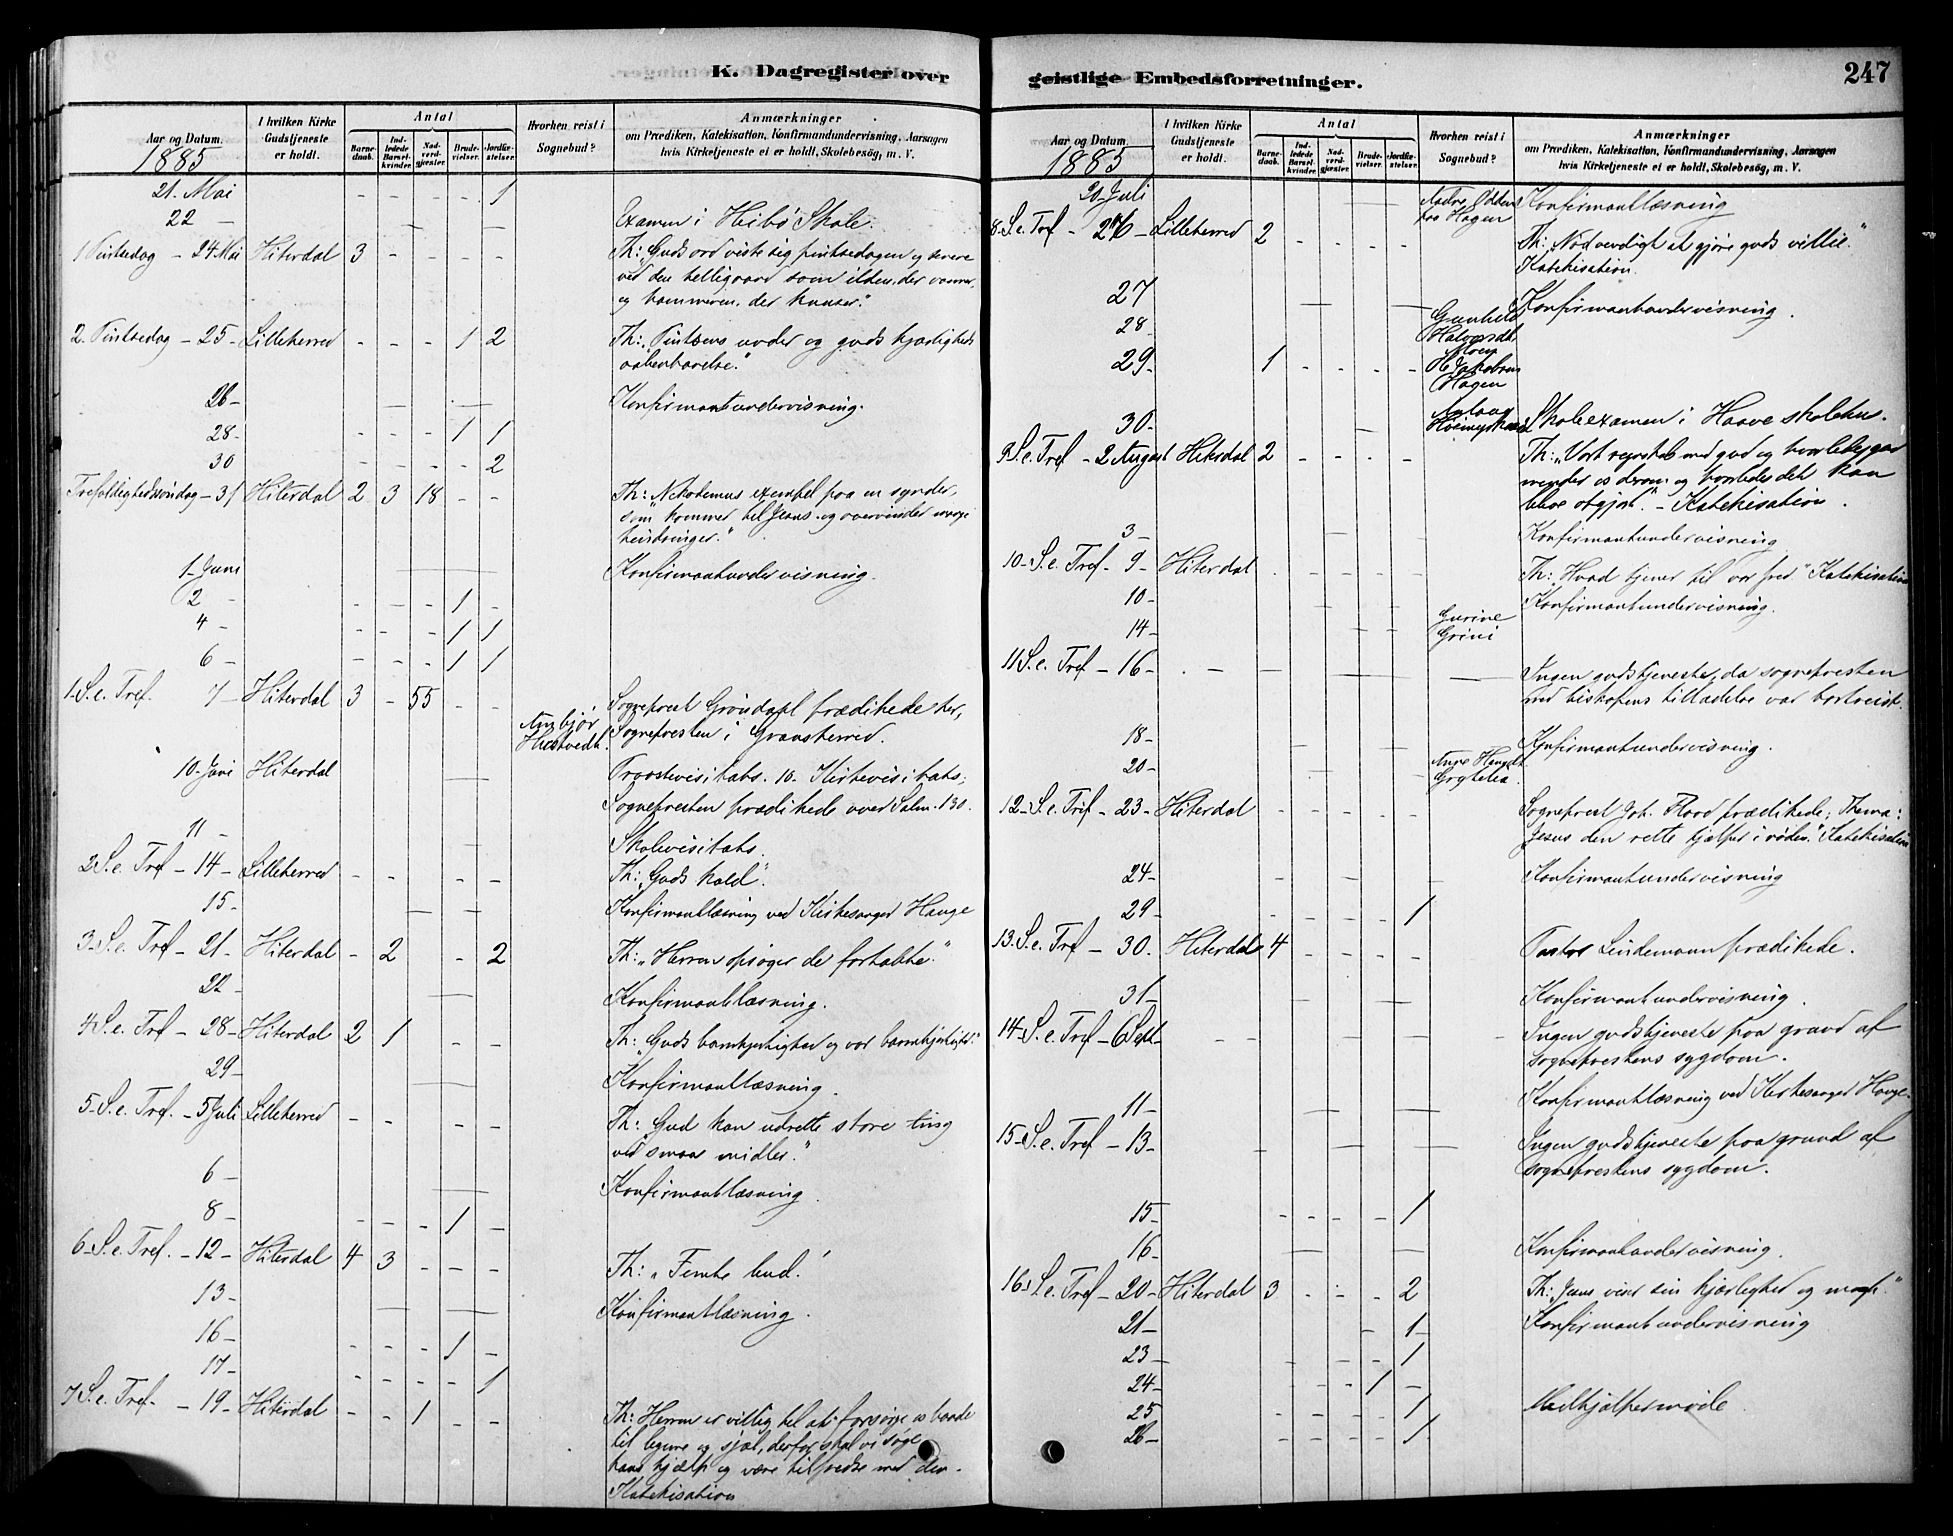 K. Dagregister over
Aar og Datum.
1885
I hvilken Kirke Gudstjeneste er holdt.
Antal
Barnedaab.
Indledede Barselkvinder.
Nadverdgjæster.
Brudevielser.
Jordfæstelser.
Hvorhen reist i Sognebud?
Anmærkninger
om Prædiken, Katekisation, Konfirmandundervisning, Aarsagen
hvis Kirketjeneste ei er holdt, Skolebesøg, m. V.
21. Mai - - - - 1
22 - - - Examen i Heibö Skole.
1 Pintsedag - 24 Mai Hiterdal 3 - - - - Th: "Guds ord viste sig pintsedagen og senere
ved den helligaand som ilden, der varmer,
og hammeren, der knuser."
2. Pintsedag - 25 - Lilleherred - - - 1 2 Th: "Pintsens under og guds kjærligheds
aabenbarelse."
26 - - - Konfirmantundervisning.
28 - - - - 1 1
30 - - - - 2
Trefoldighedssöndag - 31 Hiterdal 2 3 18 - - Th: Nikodemus exempel paa en synder,
som kommer til Jesus og overvinder mange
hindringer."
1. Juni - - Konfirmantundervisning.
2 - - - - 1 -
4 - - - - 1 1
6 - - - - 1 1
1. S. e. Tref. 7 - Hiterdal 3 - 55 - - Sogneprest Gröndahl prædikede her,
Sognepresten i Gransherred.
10. Juni Hiterdal - Provstevisitats. 10. Kirkevisitats;
Sognepresten prædikede over Salm. 130.
11 - - Skolevisitats.
2 S. e. Tref - 14 - Lilleherred - - - - Th: "Guds kald".
15 - - - Konfirmantlæsning ved Kirkesanger Hauge
3. S. e. Tref - 21 - Hiterdal - 2 - 2 Th: "Herren opsöger de fortabte."
22 - - Konfirmantlæsning.
4 S. e. Tref - 28 - Hiterdal 2 1 - - - Th: "Guds barmhjertighed og vor barmhjertighed."
29 - - Konfirmantlæsning.
5. S. e. Tref. - 5 Juli Lilleherred - - - - Th: Gud kan udrette store ting
ved smaa midler."
6 - - Konfirmantlæsning.
8 - - - - 1 -
6. S. e. Tref. - 12 - Hiterdal 4 3 - - - Th: "Femte bud."
13 - - - Konfirmantlæsning.
16 - - - - 1 -
17 - - - - - 1
7 S. e. Tref. - 19 - Hiterdal - - 1 - - Th: Herren er villig til at forsörge os baade
til legeme og sjæl, derfor skal vi söge
hans hjælp og være tilfredse med den.
Katekisation
geistlige Embedsforretninger.
247
Aar og Datum.
1885
I hvilken Kirke Gudstjeneste er holdt.
Antal
Barnedaab.
Indledede Barselkvinder.
Nadverdgjæster.
Brudevielser.
Jordfæstelser.
Hvorhen reist i Sognebud?
Anmærkninger
om Prædiken, Katekisation, Konfirmandundervisning, Aarsagen
hvis Kirketjeneste ei er holdt, Skolebesøg, m. V.
20. Juli - - Hagen Konfirmantlæsning
8. S. e. Tref - 26 - Lilleherred 2 - - - - Th: "Nödvendigt at gjöre guds villie."
Katekisation.
27 - - Konfirmantundervisning.
28 - Gunhild
Halvorsdtr.
29 - 1 - - - - Hagen
30. - - Skoleexamen i Haave skolehus.
9 S. e. Tref - 2 August Hiterdal 2 - - - - Th: "Vort regnskab med gud og hvorledes han
minder os derom og hvorledes det kan
blive opgjort." - Katekisation.
3 - - - Konfirmantundervisning
10. S. e. Tref. 9 - Hiterdal - - - - Th: "Hvad tjener til vor fred." Katekisation
10 - - - Konfirmantundervisning.
14 - - - - Gurine
Grini
11 S. e. Tref - 16 - - - - Ingen gudstjeneste, da sognepresten
med biskopens tilladelse var bortreist.
18 - - - Konfirmantundervisning.
20 - - -
12. S. e. Tref - 23 - Hiterdal - - - - - Sogneprest Joh. Flood prædikede; Thema:
Jesus den rette hjælper i nöden." Katekisation
24 - - - - Konfirmantundervisning
29 - - - - - 1
13. S. e. Tref - 30. Hiterdal 4 - - - - Pastor Lindemann prædikede.
31 - - - Konfirmantundervisning.
14. S. e. Tref - 6 Sept - - - - Ingen gudstjeneste paa grund af
sogneprestens sygdom.
11 - - - Konfirmantlæsning ved Kirkesanger Hauge.
15. S. e. Tref - 13 - - - - Ingen gudstjeneste paa grund af
sogneprestens sygdom.
15 - - - - - 1
16 - - - Konfirmantundervisning.
16. S. e. Tref - 20 - Hiterdal 3 - - - 2 Th: "Jesus viser sin kjærlighed og magt."
21 - - 1 - Konfirmantundervisning
23 - - - - - 1
24 - - - - 1 -
25 - - - - - 1 Medhjælpermöde.
26 - - - - - 1